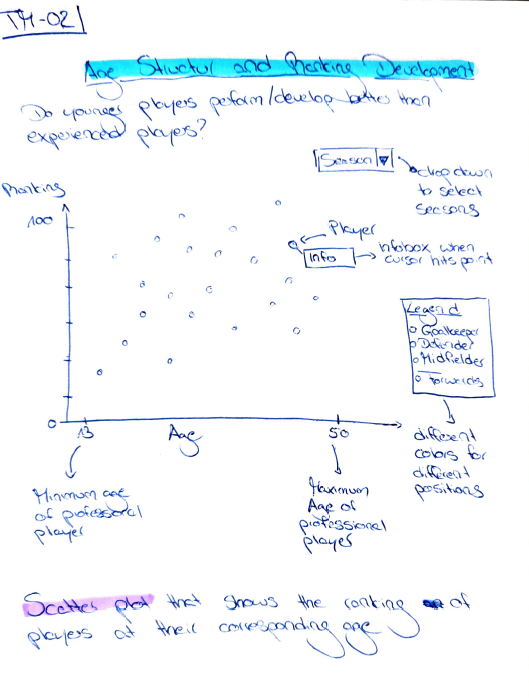 TM-02
Age Structur and Ranking Development
Do younger players perform/develop better than
experienced players?
Season
dropdown
to select
seasons
Ranking
100
Player
Info
Infobox when
cursor hits point
Legend
Goalkeeper
Defender
Midfielder
Forwards
0
13
Age
50
different
colors for
different
positions
Minimum age
of professional
player
Maximum
Age of
professional
player
Scatter plot that shows the ranking of
players at their corresponding age